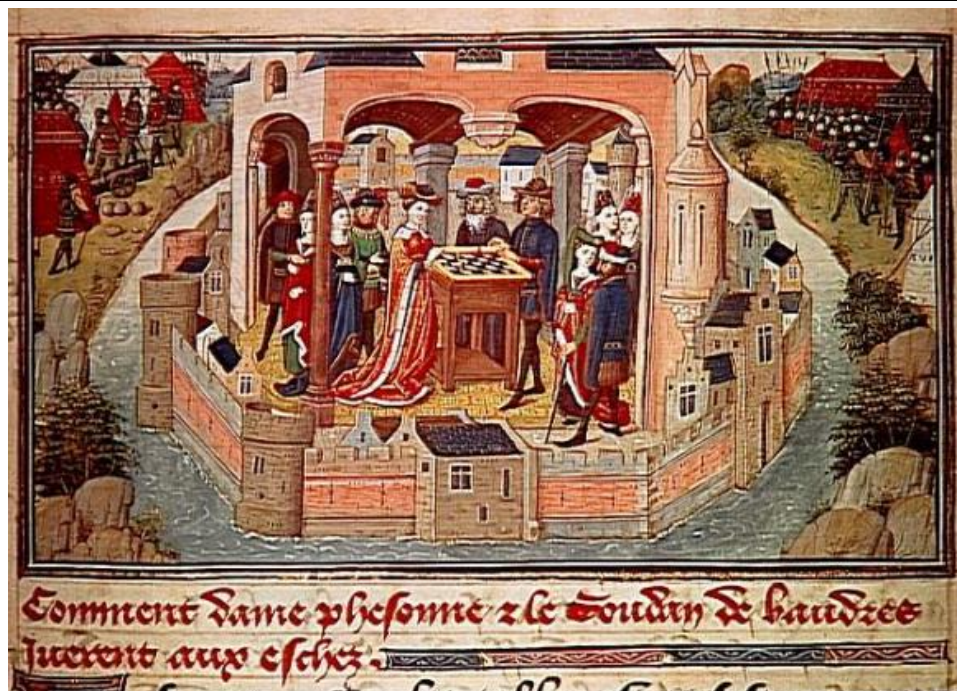 Comment dame phesonne ⁊ le Soudan de baudres
Juerent aux eschez.